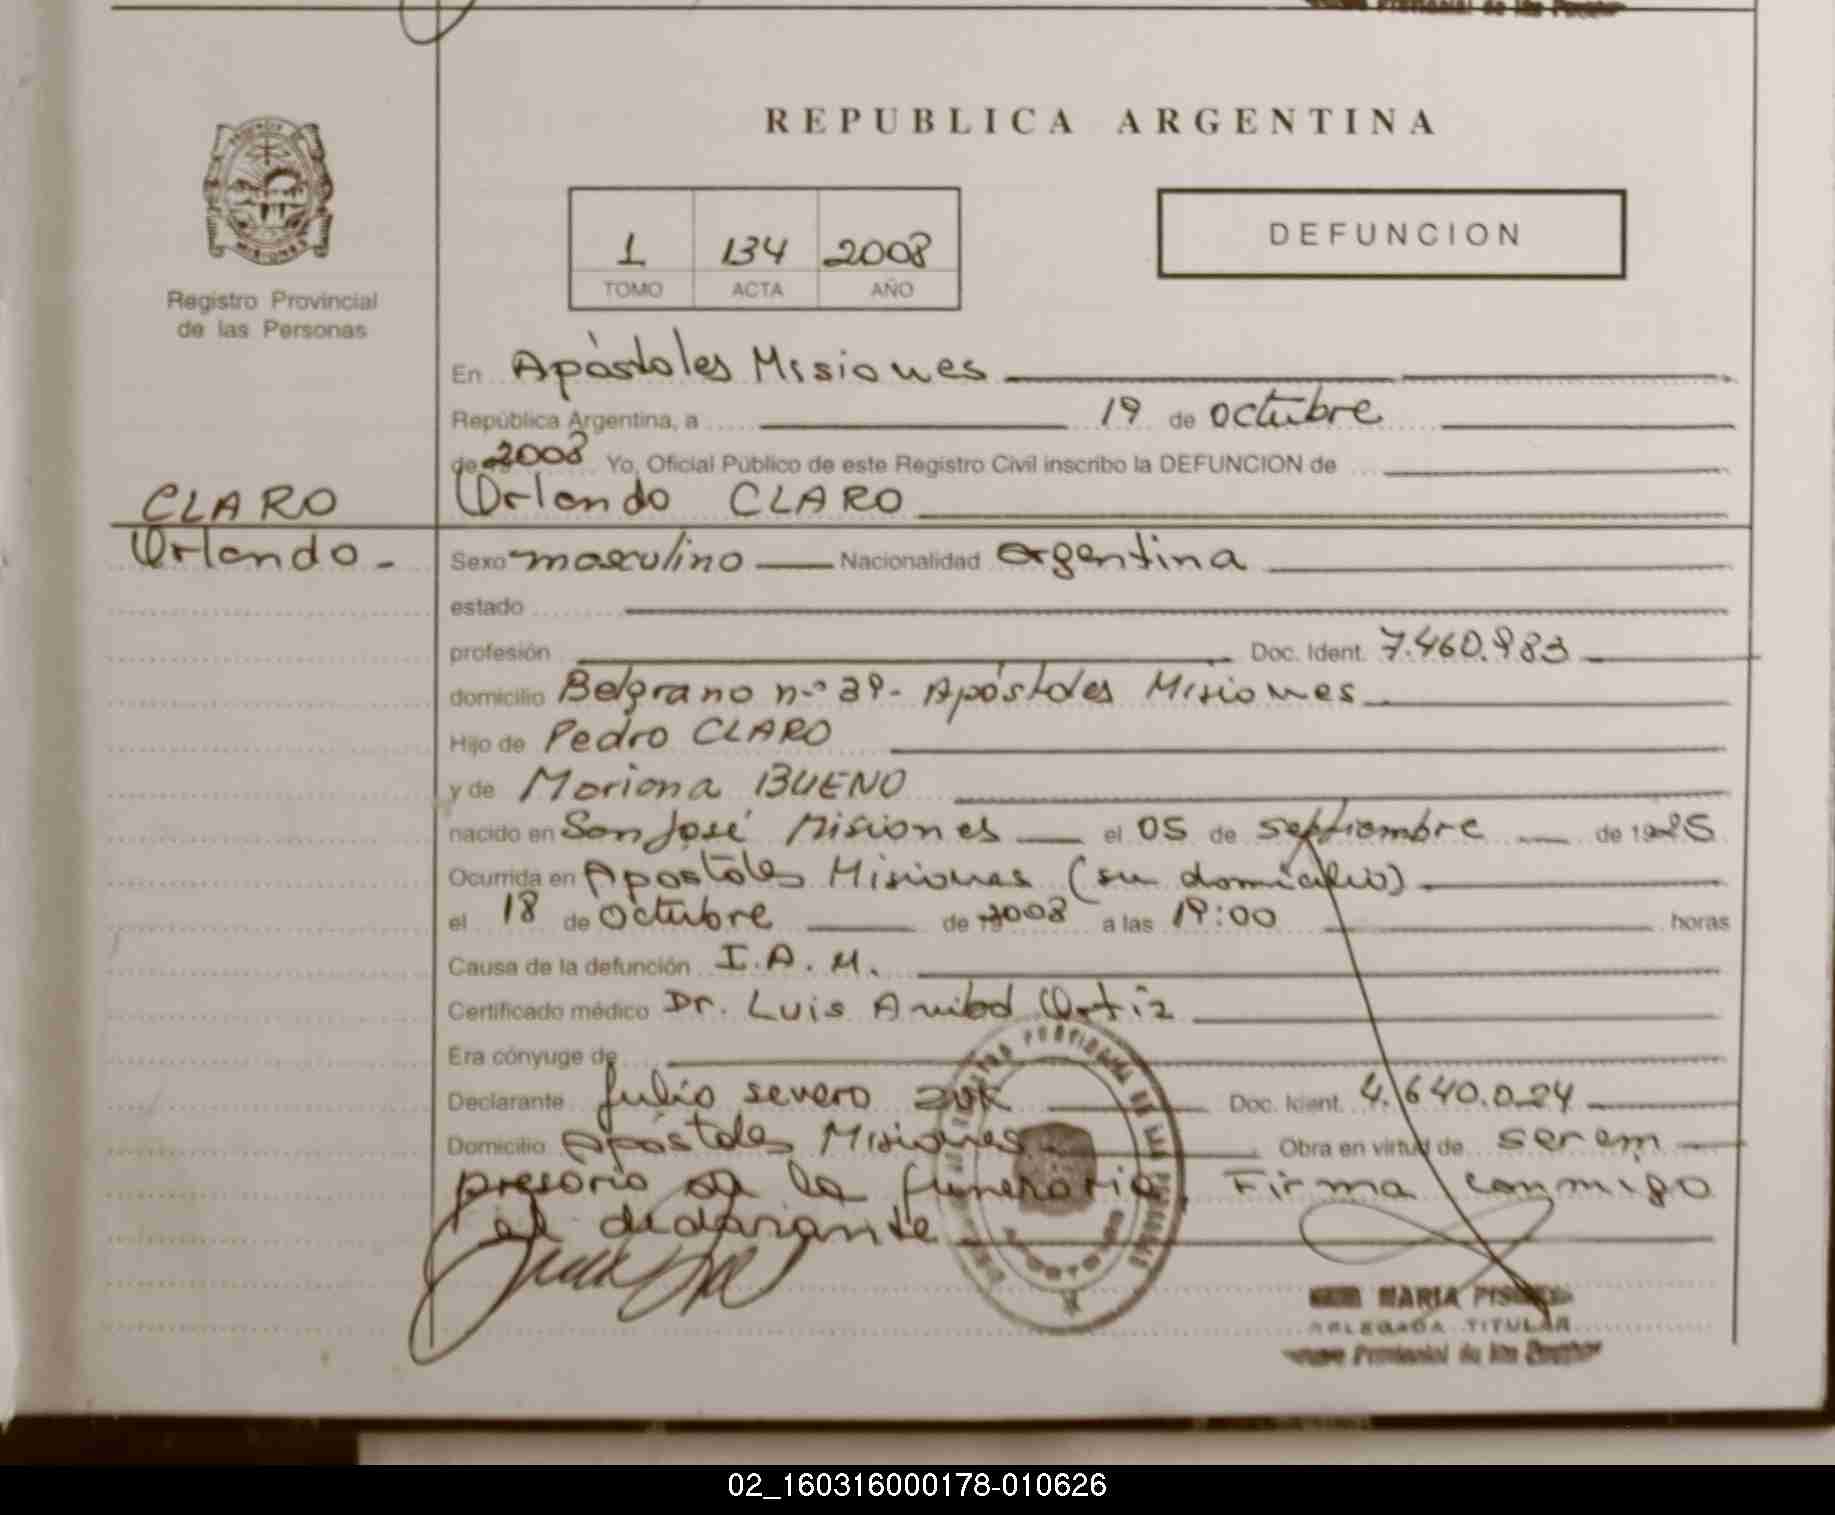 REPUBLICA ARGENTINA
MISIONES
Registro Provincial
de las Personas
1 134 2008
TOMO ACTA AÑO
DEFUNCION
En Apóstoles Misiones
República Argentina, a 19 de octubre
de 2008 Yo, Oficial Público de este Registro Civil inscribo la DEFUNCION de
Orlando CLARO
CLARO
Orlando.-
Sexo masculino Nacionalidad argentina
estado
profesión Doc. Ident. 7.460.983
domicilio Belgrano n.º 39- Apóstoles Misiones
Hijo de Pedro CLARO
y de Mariana BUENO
nacido en San José Misiones el 05 de septiembre de 1925
Ocurrida en Apostoles Misiones (su domicilio)
el 18 de octubre de 2008 a las 19:00 horas
Causa de la defunción I.A.M.
Certificado médico Dr. Luis Anibal Ortiz
Era cónyuge de
Declarante Julio severo ZUK Doc. Ident. 4.640.024
Domicilio Apóstoles Misiones Obra en virtud de ser em
presario de la funeraria. Firma conmigo
el declarante
MARIA
DELEGADA TITULAR
Provincial de las Personas
02_160316000178-010626